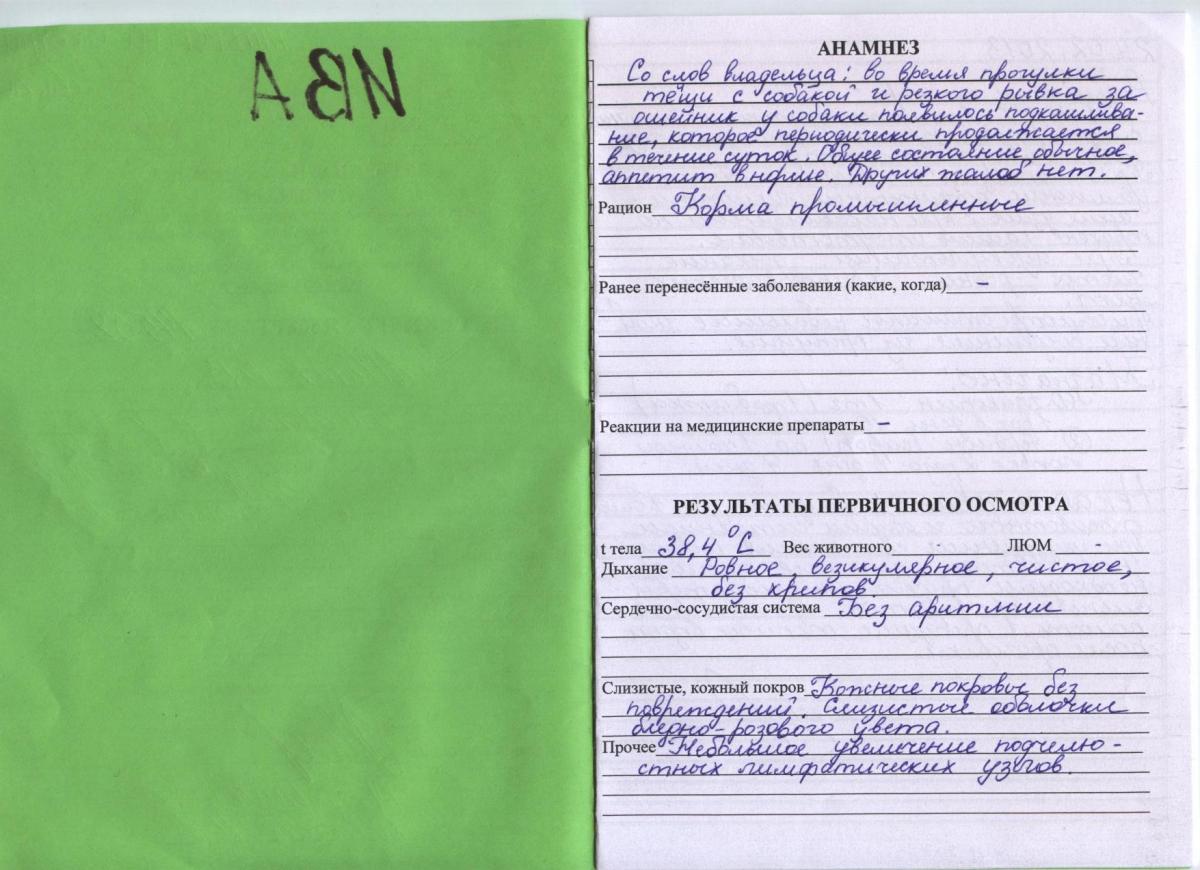 ИВА
АНАМНЕЗ
Со слов владельца: во время прогулки
тёщи с собакой и резкого рывка за
ошейник у собаки появилось подкашлива-
ние, которое периодически продолжается
в течение суток. Общее состояние обычное,
аппетит в норме. Других жалоб нет.
Рацион Корма промышленные
Ранее перенесённые заболевания (какие, когда) -
Реакции на медицинские препараты -
РЕЗУЛЬТАТЫ ПЕРВИЧНОГО ОСМОТРА
t тела 38,4 °C Вес животного - ЛЮМ -
Дыхание Ровное, везикулярное, чистое,
без хрипов.
Сердечно-сосудистая система Без аритмии
Слизистые, кожный покров Кожные покровы без
повреждений. Слизистые оболочки
бледно-розового цвета.
Прочее Небольшое увеличение подчелю-
стных лимфатических узлов.